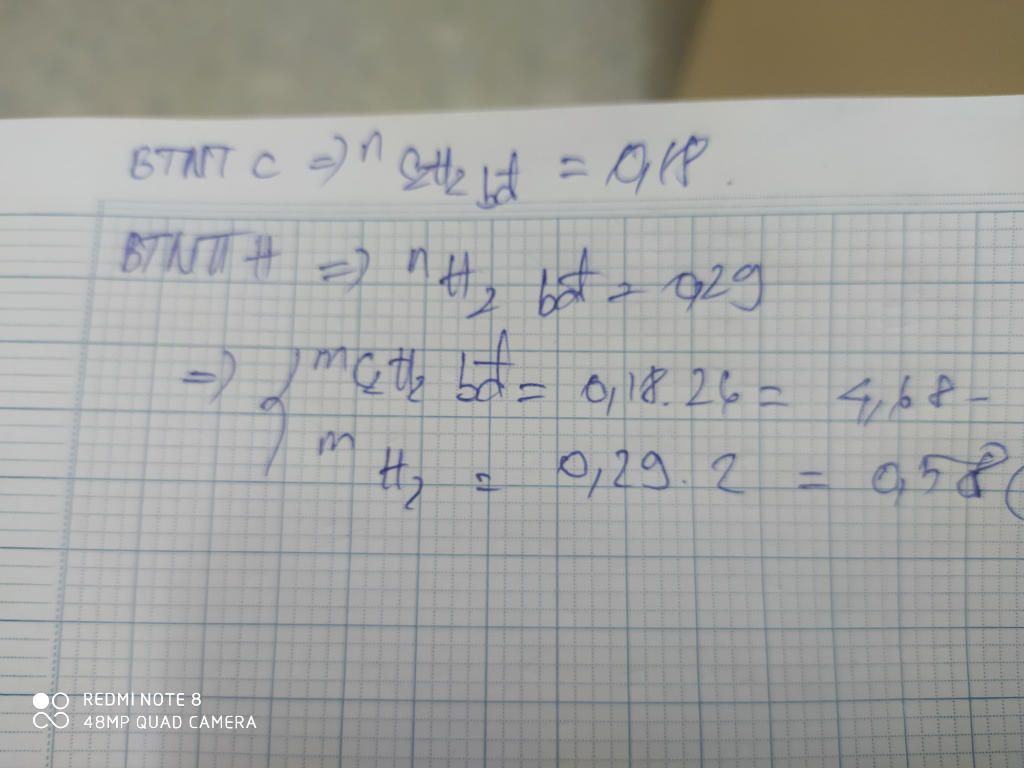 BTNT C => n C₂H₂ bđ = 0,18.
BTNT H => n H₂ bđ = 0,29
=> { m C₂H₂ bđ = 0,18.26 = 4,68
m H₂ = 0,29.2 = 0,58 (
REDMI NOTE 8
48MP QUAD CAMERA